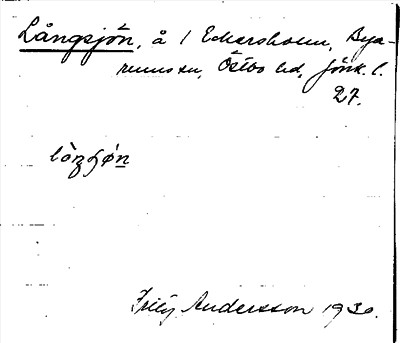 Långsjön, å / Ekersholm, Bya-
rums sn, Östbo hd, Jönk. l.
27.
lòŋʃǿn
Fritz Andersson 1930.